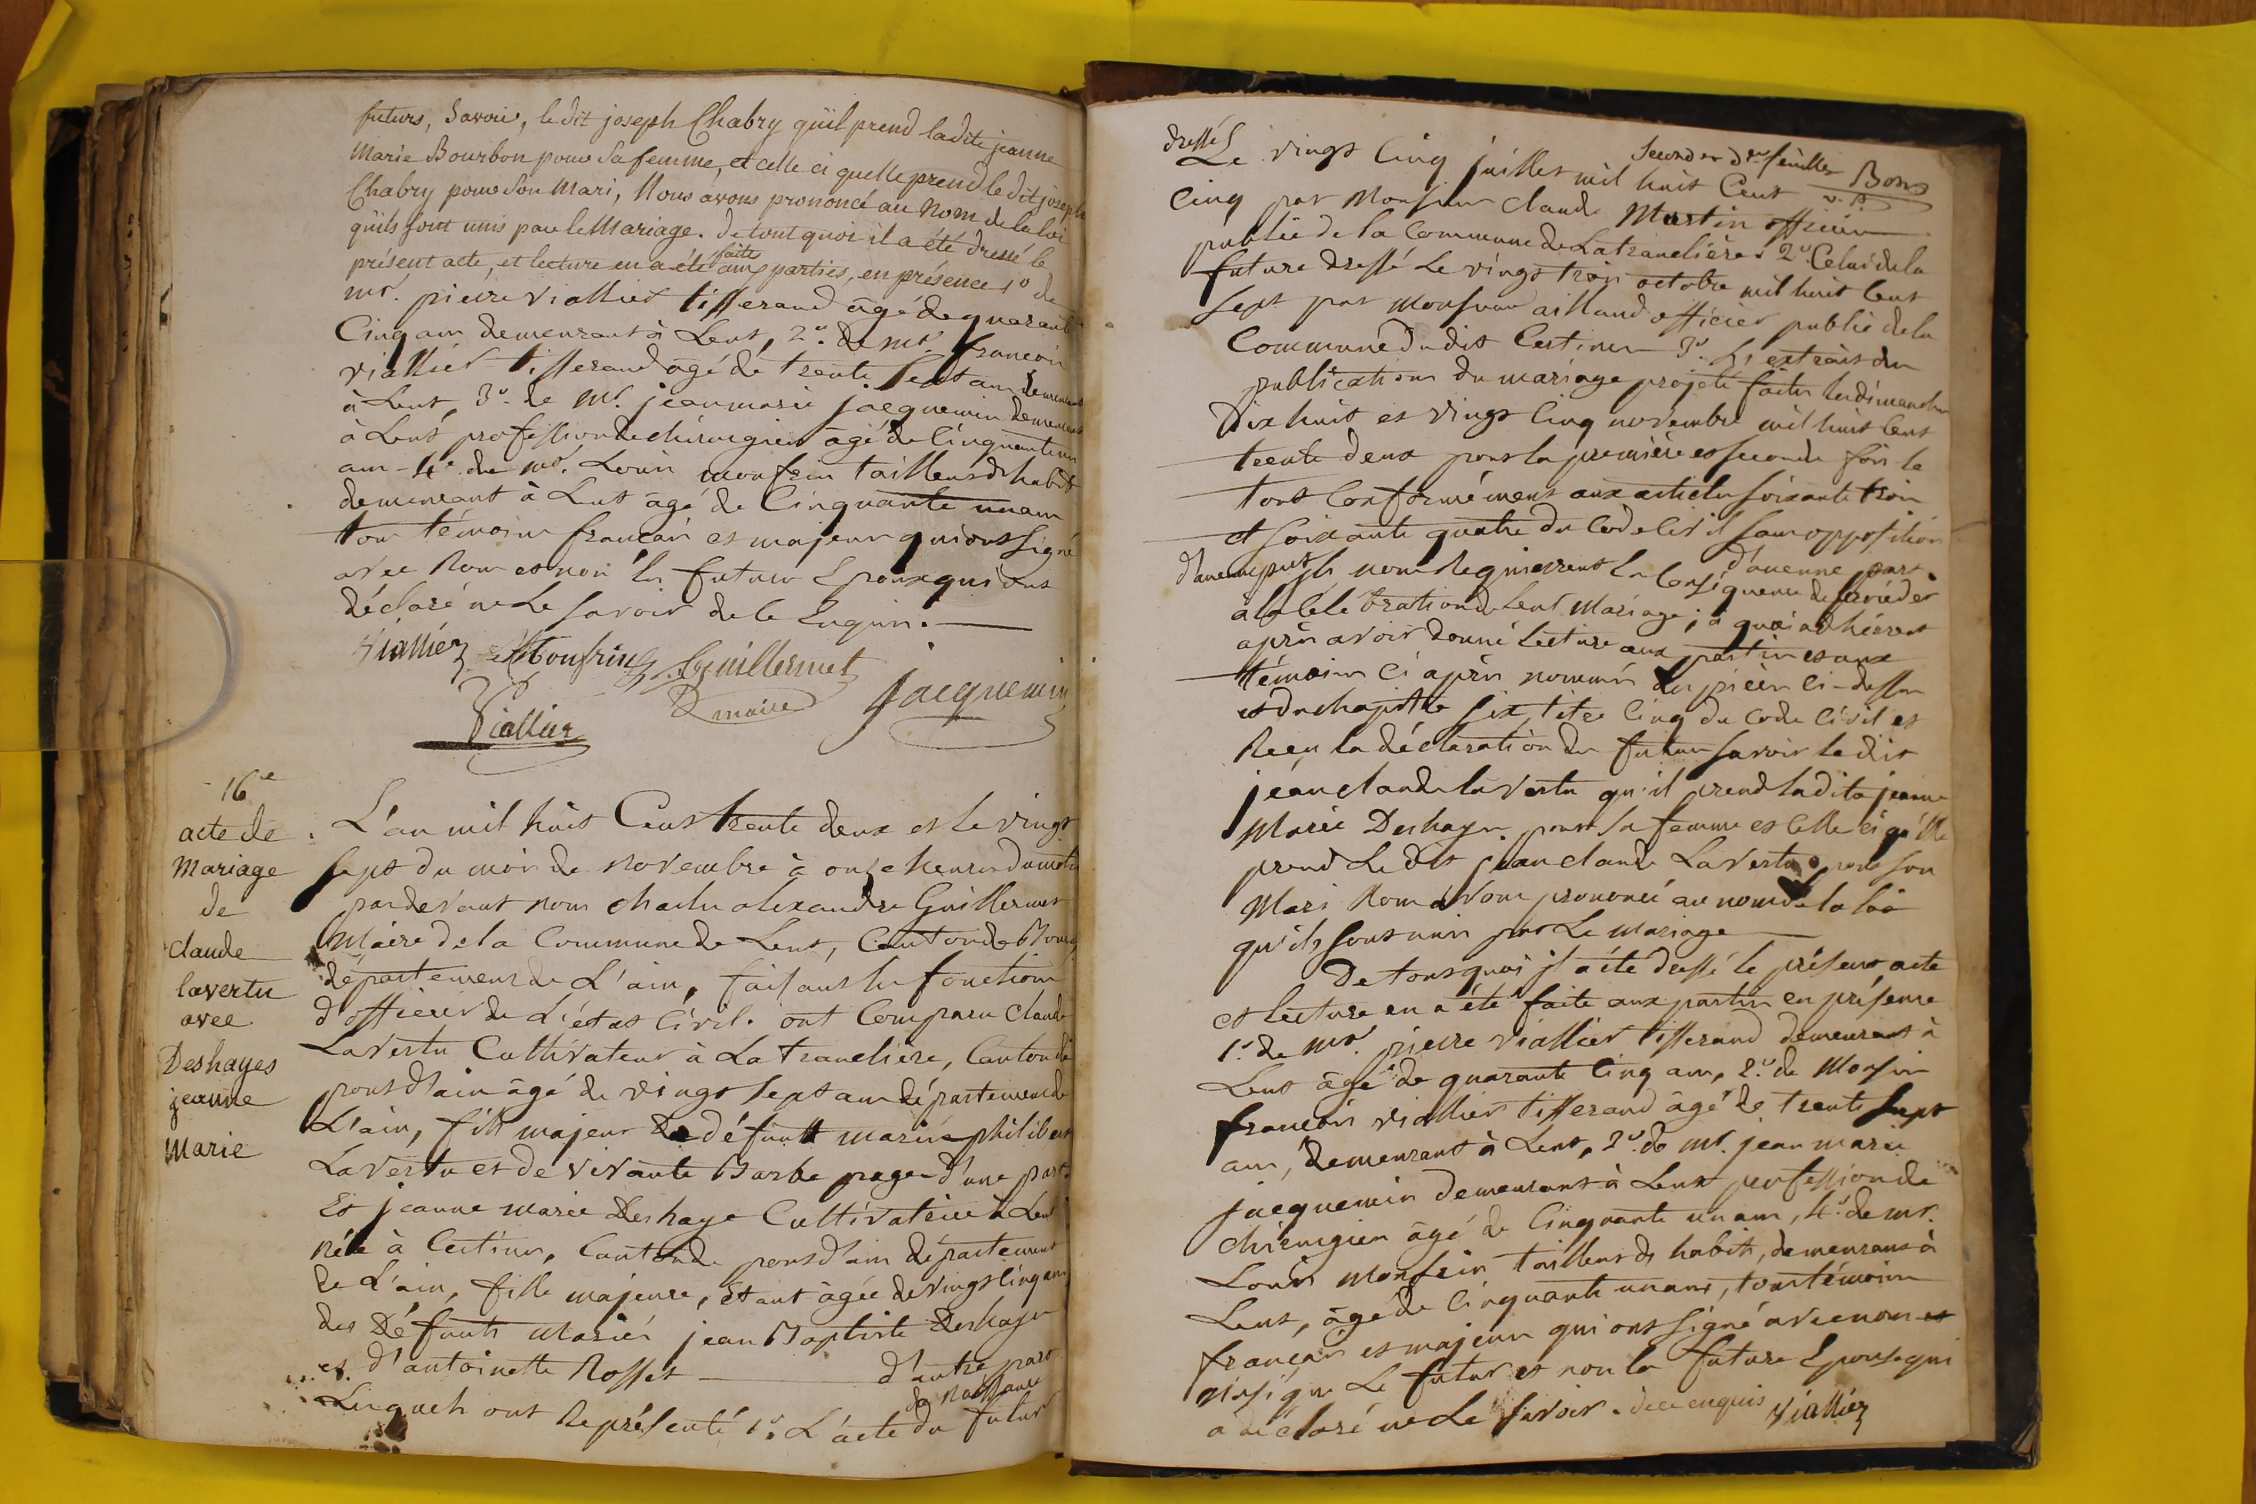 futurs, Savoir, le dit joseph Chabry qu'il prend ladite jeanne
Marie Bourbon pour Sa femme, et celle ci quelle prend le dit joseph
Chabry pour Son Mari, Nous avons prononcé au Nom de la loi
qu'ils sont unis par le Mariage. De tout quoi il a été dressé le
présent acte, et lecture en a été faite aux parties, en présence 1º de
mr. pierre viallier tisserand âgé de quarante
Cinq ans demeurant à Lent, 2º. de mr. francois
viallier tisserand âgé de trente Sept ans demeurant
à Lent, 3º. de Mr. jean marie jacquemin demeurant
à Lent profession de chirurgien âgé de Cinquante un
ans - 4º. de mr. Louis monfrin tailleur d'habits
demeurant à Lent âgé de Cinquante un ans
tous témoins francais et majeurs qui ont signé
avec Nous et non les futurs Epoux qui ont
déclaré ne Le Savoir de ce Enquis.
Viallier Monfrin Guillermet
maire Jacquemin
Viallier
16e
acte de
Mariage
de
Claude
lavertu
avec
Deshayes
jeanne
Marie
L'an mil huit Cent trente deux et le vingt
sept du mois de Novembre à onze heures du matin
pardevant nous charles alexandre Guillermet
Maire de la Commune de Lent, Canton de Bourg
département de L'ain, faisant les fonctions
d'officier de L'état Civil. ont Comparu Claude
Lavertu Cultivateur à La tranclière, Canton de
pont d'ain âgé de vingt sept ans département de
L'ain, fils majeur de défunt marie philibert
Lavertu et de vivante Barbe page d'une part
Et jeanne marie Deshaye Cultivatrice à Lent
Née à Certines, Canton de pont d'ain département
de L'ain, fille majeure, Etant âgée de vingt cinq ans
des Défunts Mariés jean Baptiste Deshayes
et d'antoinette Rosset d'autre part
Lesquels ont Représenté 1º. L'acte de Naissance du futur
Second et der feuillet Bon
dressé Le vingt Cinq juillet mil huit Cent
Cinq par Monsieur claude Martin officier
public de la Commune de Latranclière 2º Celui de la
future dressé Le vingt trois octobre mil huit Cent
Sept par Monsieur aillaud officier public de la
Commune du dit Certines 3º. Les extraits des
publications du mariage projeté faites les dimanches
Dix huit et vingt Cinq novembre mil huit Cent
trente deux pour la première et seconde fois le
tout Conformément aux articles soixante trois
et soixante quatre du Code Civil sans opposition
d'aucune part
d'aucune part ils nous Requierent En Conséquence de procéder
à la Célébration de leur Mariage; à quoi adhérent
après avoir donné Lecture aux parties et aux
témoins Ci après nommés des pièces ci-dessus
et du chapitre six, titre Cinq du Code Civil et
Reçu la déclaration des futurs savoir le dit
jean claude lavertu qu'il prend ladite jeanne
Marie Deshayes pour Sa femme et Celle ci qu'elle
prend Le Dit jean claude Lavertu pour son
Mari Nous avons prononcé au nom de la loi
qu'ils sont unis par Le Mariage
De tout quoi il a été dressé le présent acte
et lecture en a été faite aux parties en présence
1º. de Mr. pierre viallier tisserand demeurant à
Lent âgé de quarante Cinq ans, 2º. de Monsieur
francois viallier tisserand âgé de trente Sept
ans, demeurant à Lent, 3º. de Mr. jean marie
jacquemin demeurant à Lent profession de
chirurgien âgé de Cinquante un ans, 4º. de mr.
Louis Monfrin tailleur d'habits, demeurant à
Lent, âgé de Cinquante un ans, tous témoins
francais et majeurs qui ont signé avec nous et
ainsi que Le futur et non la future Epouse qui
a déclaré ne Le Savoir. de ce enquis Viallier